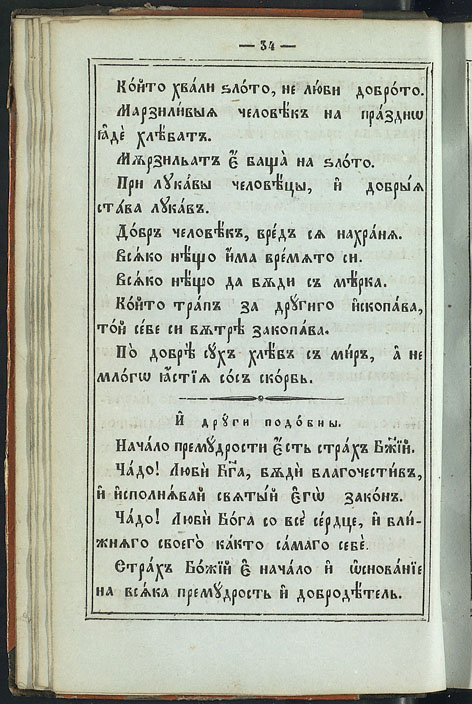 — 34 —
Ко́йто хва́ли ѕло́то, не лю́би добро́то.
Марзили́выѧ человѣ́къ на пра́зднѡ
ꙗ҆дѐ хлѣ́батъ.
Мѫ́рзильатъ є҆̀ баща̀ на ѕло́то.
При лука́вы человѣ́цы, и҆ добры́ѧ
ста́ва лука́въ.
До́бръ человѣ́къ, вре́дъ сѧ нахра́нѧ.
Всѧ́ко нѣ́що и҆́ма вре́мѧто си.
Всѧ́ко нѣ́що да бѫ́ди съ мѣ́рка.
Ко́йто тра́пъ за дрꙋ́гиго и҆скопа́ва,
то́й се́бе си вѫ́трѣ закопа́ва.
По̀ добрѣ̀ сꙋ́хъ хлѣ́бъ съ ми́ръ, а҆ не
мло́гѡ ꙗ҆́стїѧ со́съ ско́рбь.
И҆ дрꙋ́ги подо́бны.
Нача́ло премꙋ́дрости є҆́сть стра́хъ Бж҃їй.
Ча́до! Любѝ Бг҃а, бѫдѝ благочести́въ,
и҆ и҆сполнѧ́вай свѧты́й є҆гѡ̀ зако́нъ.
Ча́до! Любѝ Бо́га со всѐ се́рдце, и҆ бли́-
жнѧго своего̀ ка́кто са́маго себѐ.
Стра́хъ Бо́жїй є҆̀ нача́ло и҆ ѡ҆снова́нїе
на всѧ́ка премꙋ́дрость и҆ добродѣ́тель.